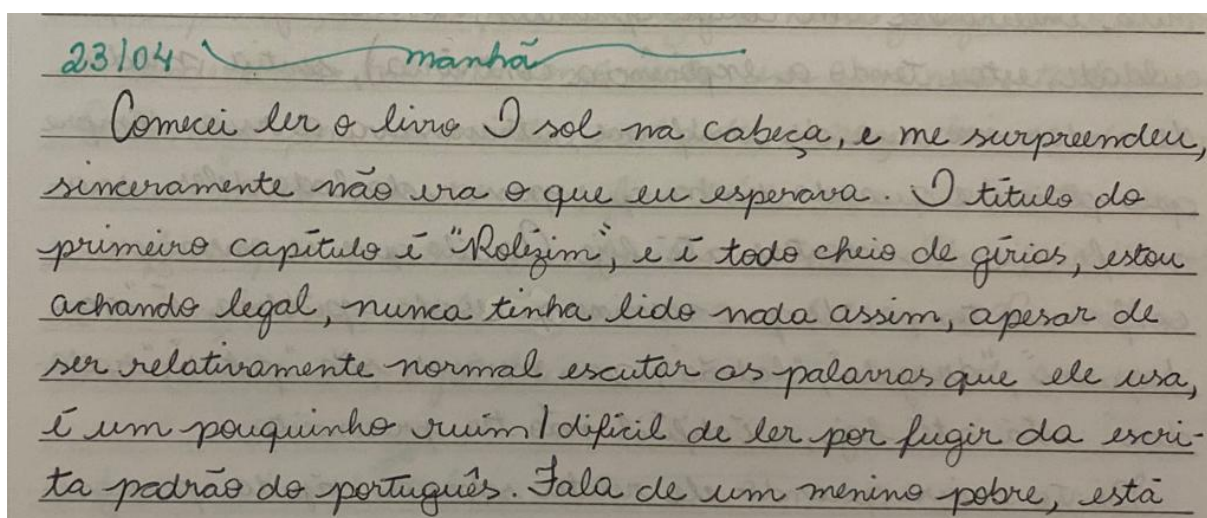 23/04 manhã
Comecei ler o livro O sol na cabeça, e me surpreendeu,
sinceramente não era o que eu esperava. O título do
primeiro capítulo é "Rolézim", e é todo cheio de gírias, estou
achando legal, nunca tinha lido nada assim, apesar de
ser relativamente normal escutar as palavras que ele usa,
é um pouquinho ruim/difícil de ler por fugir da escri-
ta padrão do português. Fala de um menino pobre, está